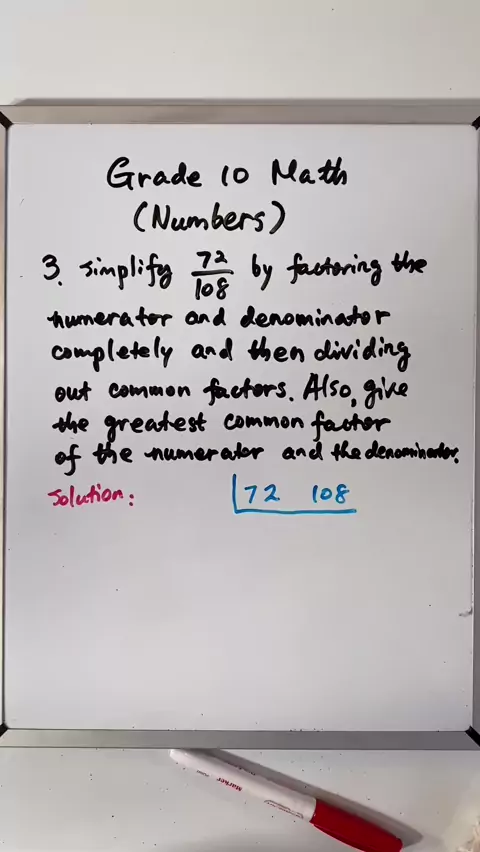 Grade 10 Math
(Numbers)
3. Simplify 72/108 by factoring the
numerator and denominator
completely and then dividing
out common factors. Also, give
the greatest common factor
of the numerator and the denominator.
Solution: 72 108
Marker